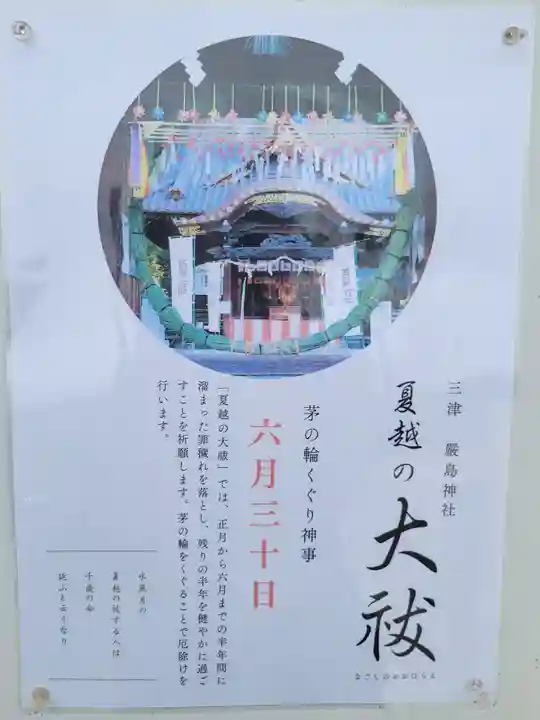 三津 嚴島神社
夏越の
大祓
なごしのおおはらえ
茅の輪くぐり神事
六月三十日
「夏越の大祓」では、正月から六月までの半年間に
溜まった罪穢れを落とし、残りの半年を健やかに過ご
すことを祈願します。茅の輪をくぐることで厄除けを
行います。
水無月の
夏越の祓する人は
千歳の命
延ふと云うなり